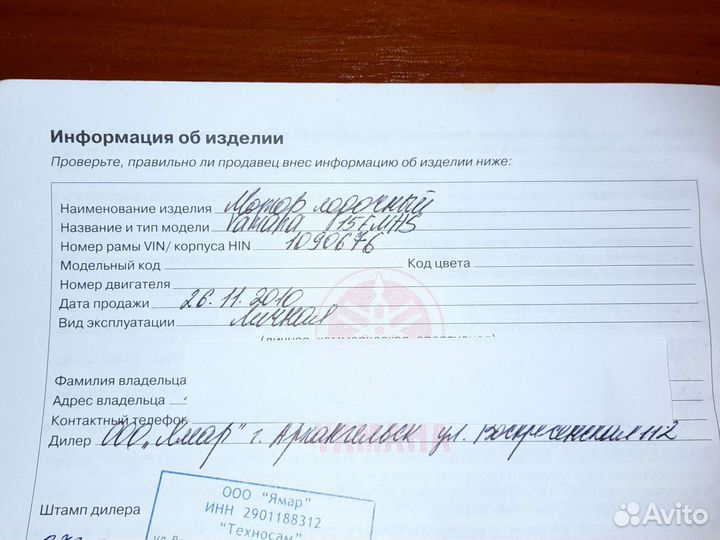 Информация об изделии
Проверьте, правильно ли продавец внес информацию об изделии ниже:
Наименование изделия Мотор лодочный
Название и тип модели Yamaha 15FMHS
Номер рамы VIN/ корпуса HIN 1090676
Модельный код Код цвета
Номер двигателя
Дата продажи 26.11.2010
Вид эксплуатации Личная
Фамилия владельца
Адрес владельца
Контактный телефон
Дилер ООО „Ямар" г. Архангельск ул. Воскресенская 112
YAMAHA
Штамп дилера
ООО "Ямар"
ИНН 2901188312
"Техносам"
Avito